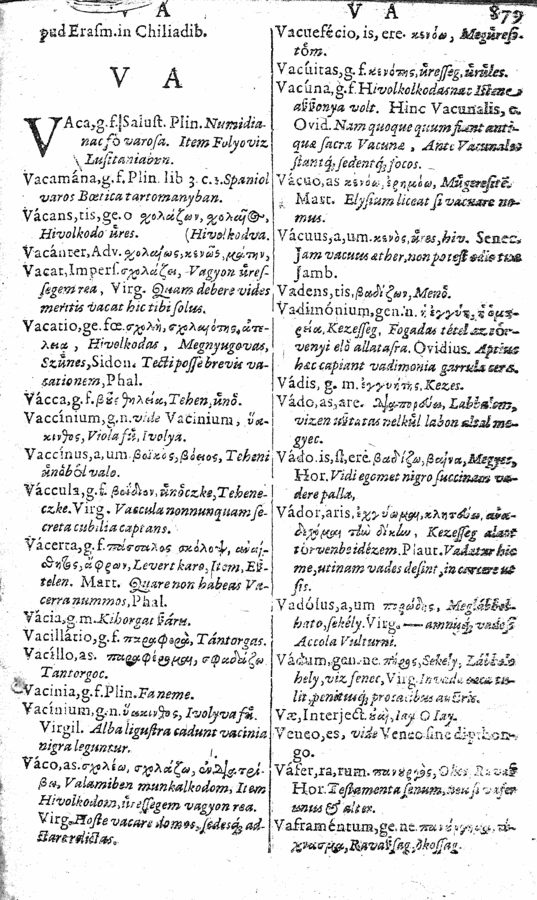 V A
V A 879
pud Erasm. in Chiliadib.
V A
VAca, g. f. Salust. Plin. Numidia-
nac fò varosa. Item Folyo viz
Lusitaniaban.
Vacamána, g. f. Plin. lib 3. c. 1. Spaniol
varos Bœtica tartomanyban.
Vácans, tis, ge. o σχολάζων,
Hivolkodo űres. (Hivolkodva.
Vacánter, Adv.
Vacat, Impers. σχολάζει, Vagyon űres-
segem rea, Virg. Quam debere vides
meritis vacat hic tibi solus.
Vacatio, ge. fœ. σχολὴ,
Hivolkodas, Megnyugovas,
Szűnes, Sidon. Tecti posse brevis va-
sationem, Phal.
Vácca, g. f. βοῦς θήλεια, Tehen, űnő.
Vaccínium, g. n. vide Vacinium, ὑά-
κινθος, Viola fű, Ivolya.
Vaccínus, a, um. βοϊκὸς, βόειος, Teheni
űnőből valo.
Váccula, g. f. βοΐδιον, űnőczke, Tehene-
czke. Virg. Vaccula nonnunquam se-
creta cubilia captans.
Vácerta, g. f. πάσσαλος σκόλοψ,
Levert karo, Item, Es-
telen. Mart. Quare non habeas Va-
cerra nummos, Phal.
Vácia, g. m. Kihorgas száru.
Vacillátio, g. f. παραφορὰ, Tántorgas.
Vacíllo, as. παραφέρομαι, σφαδάζω
Tantorgoc.
Vacinia, g. f. Plin. Fa neme.
Vacínium, g. n. ὑάκινθος, Ivolya fű.
Virgil. Alba ligustra cadunt vacinia
nigra leguntur.
Váco, as. σχολέω, σχολάζω,
Valamiben munkalkodom, Item
Hivolkodom, űressegem vagyon rea.
Virg. Hoste vacare domos, sedesq; ad-
stare relictas.
Vacuefécio, is, ere. κενόω, Megűresi-
tőm.
Vacúitas, g. f. κενότης, űresseg, űrűles.
Vacúna, g. f. Hivolkolkodasnac Istene
aßßonya volt. Hinc Vacunalis, e.
Ovid. Nam quoque quum fiunt anti-
quæ sacra Vacunæ, Ante Vacunales
stantq; sedentq; focos.
Vácuo, as κενόω, ἐρημόω, Műgeresitē.
Mart. Elysium liceat si vacuare ne-
mus.
Vácuus, a, um. κενὸς, űres, hiv. Senec.
Jam vacuus æther, non potest
Jamb.
Vadens, tis, βαδίζων, Menő.
Vadimónium, gen. n.
Kezesseg, Fogadas tétel az tőr-
venyi elő allatasra. Ovidius. Aptius
hac capiant vadimonia garrula cera.
Vádis, g. m. ἐγγυητὴς, Kezes.
Vádo, as, are. Labbalom,
vizen űtatas nelkűl labon altal me-
gyec.
Vádo, is, si, ere. βαδίζω, βαίνω, Megyec,
Hor. Vidi egomet nigro succinctam va-
dere palla,
Vádor, aris,
Kezesseg alatt
tőrvenbe idézem. Plaut. Vadatur hic
me, utinam vades desint, in carcere ut
sis.
Vadósus, a, um
bato, sekély. Virg. — amnisq; vadosi
Accola Vulturni.
Vádum, gen. ne. πόρος, Sekely, Lábbo
hely, viz fenec, Virg.
lit, penitusq;
Væ, Interject. οὐαὶ, Iay O Iay.
Veneo, es, vide Veneo sine dipthon-
go.
Váfer, ra, rum. πανοῦργος, Okos, Ravaß
Hor. Testamenta senum, neu si vafer
unus & alter.
Vaframéntum, ge. ne.
Ravaßsag, okossag.